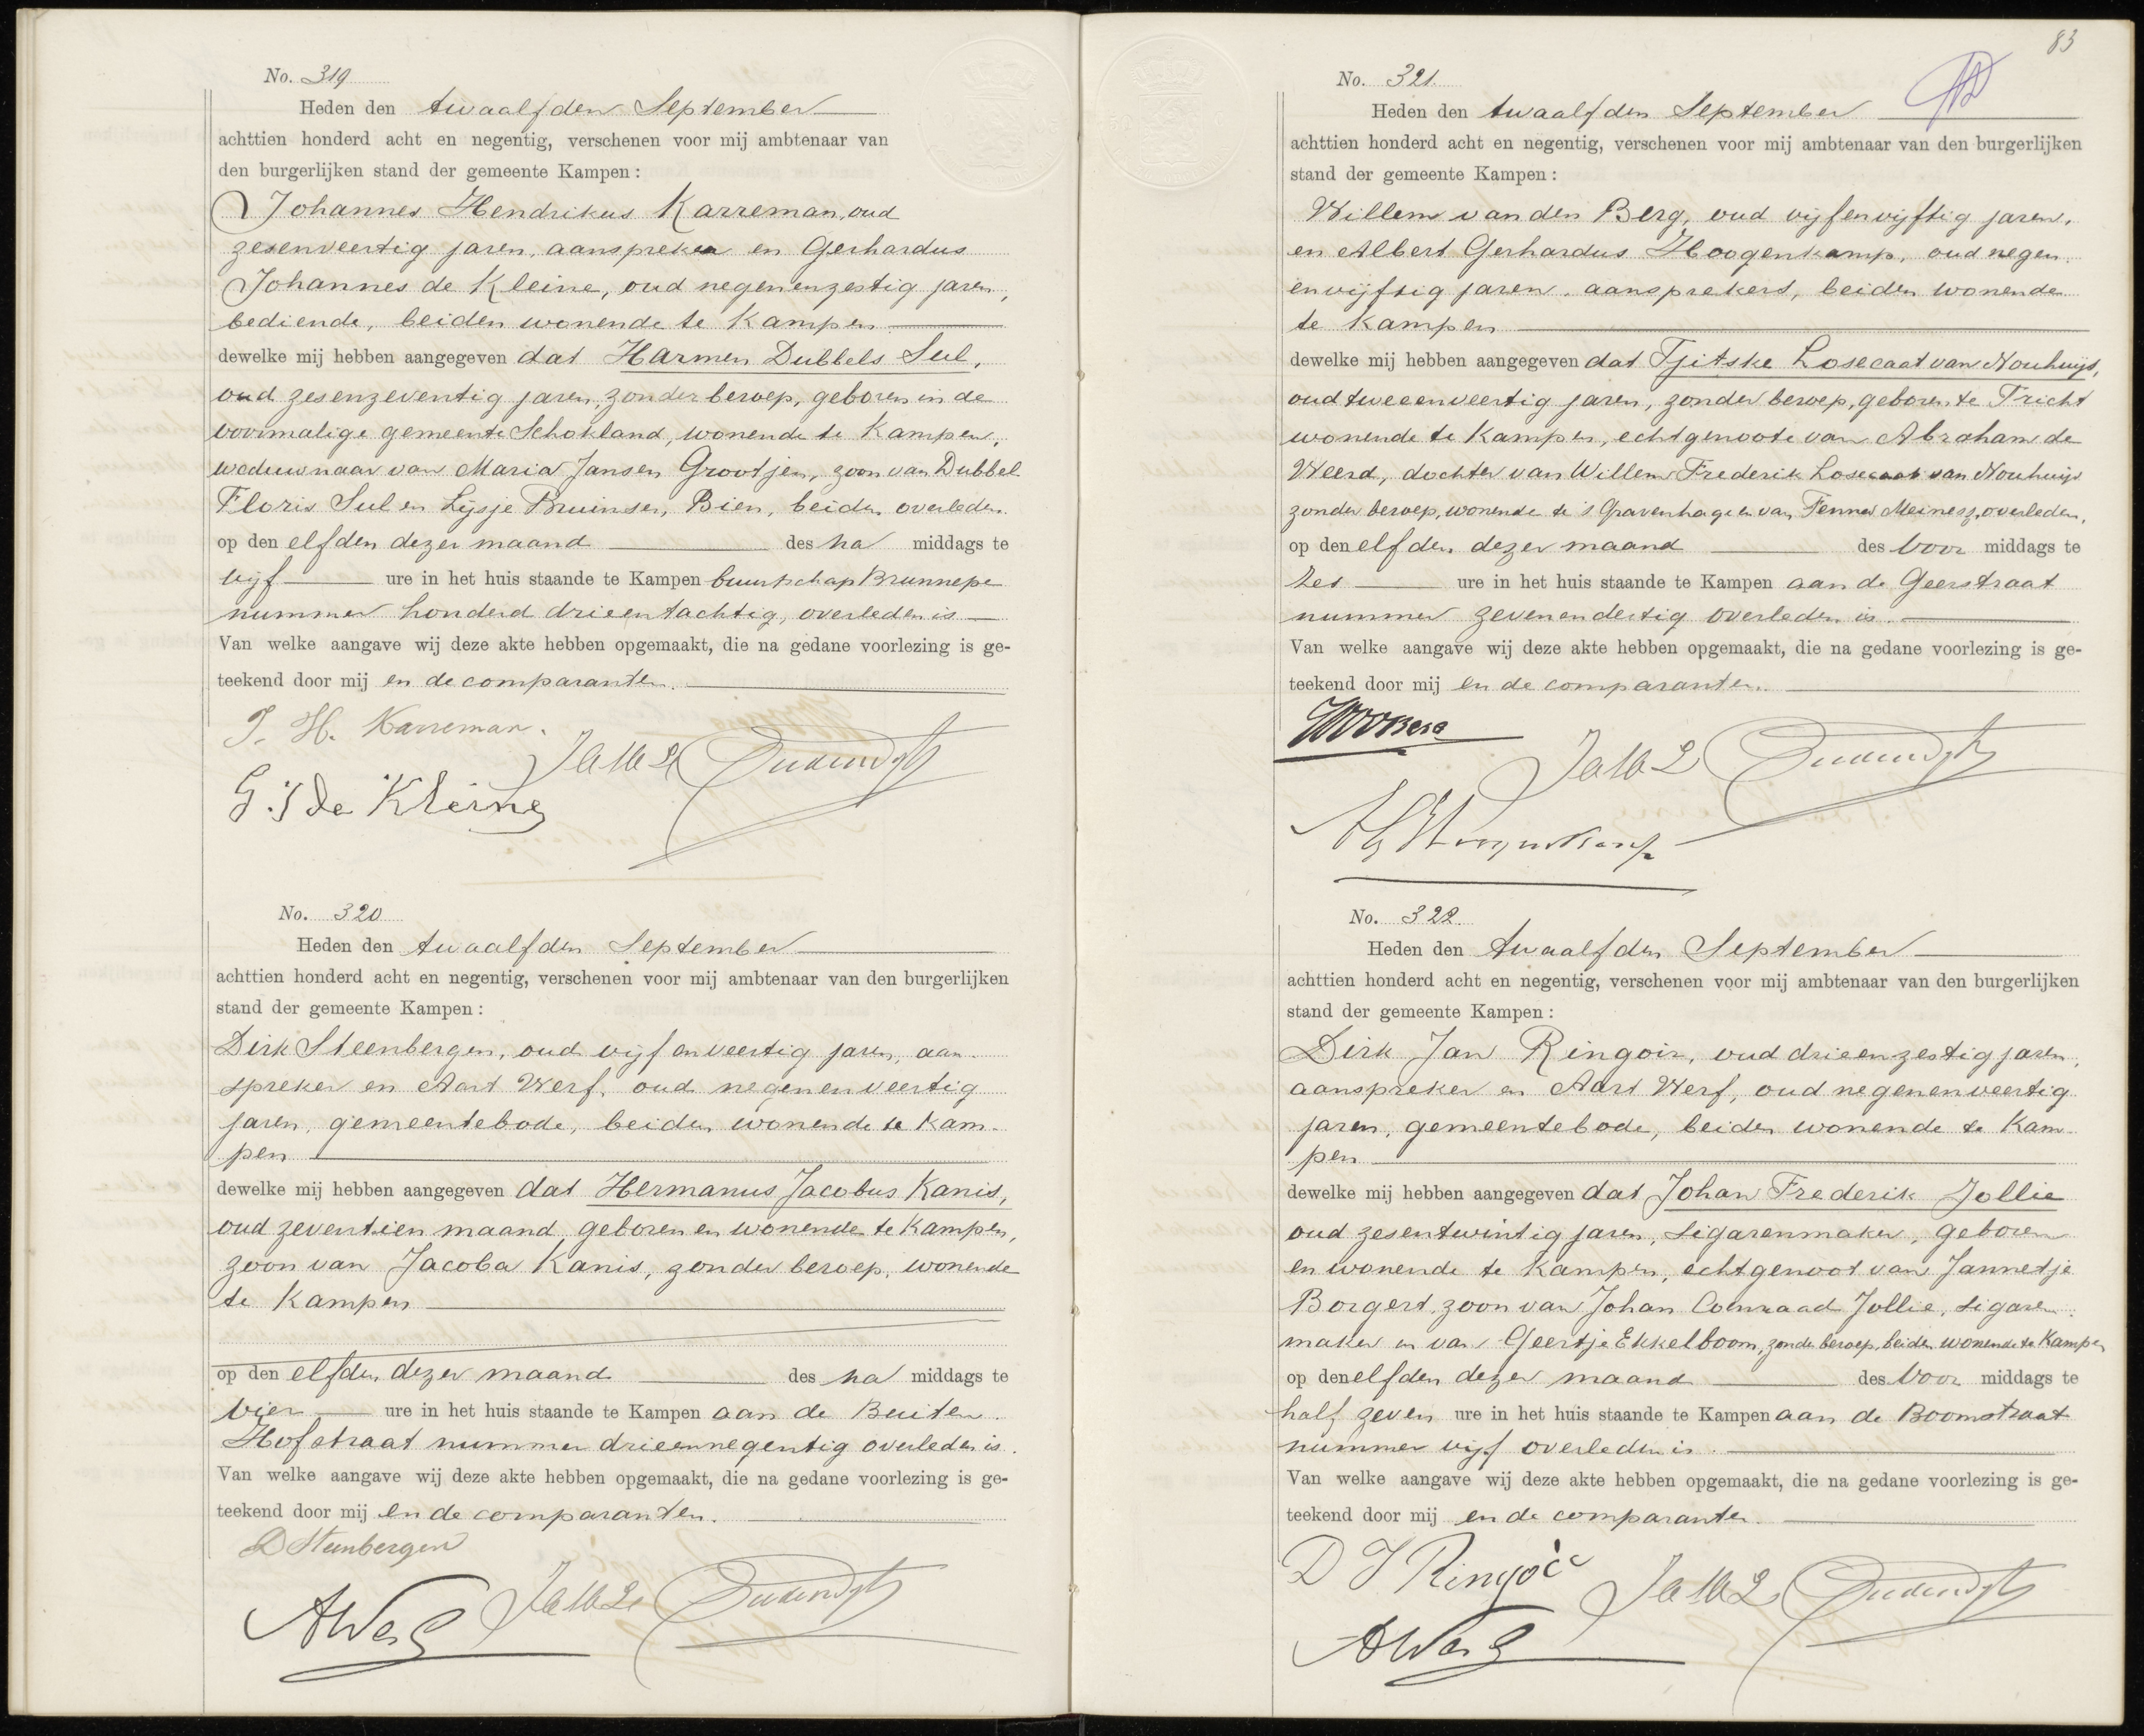 No. 319
Heden den twaalfden September
achttien honderd acht en negentig, verschenen voor mij ambtenaar van
den burgerlijken stand der gemeente Kampen:
Johannes Hendrikus Karreman, oud
zesenveertig jaren, aanspreker en Gerhardus
Johannes de Kleine, oud negenenzestig jaren,
bediende, beiden wonende te Kampen
dewelke mij hebben aangegeven dat Harmen Dubbels Sul,
oud zesenzeventig jaren, zonder beroep, geboren in de
voormalige gemeente Schokland, wonende te Kampen,
weduwnaar van Maria Jansen Grootjen, zoon van Dubbel
Floris Sul en Lijsje Bruinsen, Bien, beiden overleden.
op den elfden dezer maand des na middags te
vijf ure in het huis staande te Kampen buurtschap Brunnepe
nummer honderd drieentachtig, overleden is
Van welke aangave wij deze akte hebben opgemaakt, die na gedane voorlezing is ge-
teekend door mij en de comparanten.
J. H. Karreman.
G. J de Kleine
No. 320
Heden den twaalfden September
achttien honderd acht en negentig, verschenen voor mij ambtenaar van den burgerlijken
stand der gemeente Kampen:
Dirk Steenbergen, oud vijfenveertig jaren, aan-
spreker en Aart Werf, oud negenenveertig
jaren, gemeentebode, beiden wonende te Kam-
pen
dewelke mij hebben aangegeven dat Hermanus Jacobus Kanis,
oud zeventien maand, geboren en wonende te Kampen,
zoon van Jacoba Kanis, zonder beroep, wonende
te Kampen
op den elfden dezer maand des na middags te
vier ure in het huis staande te Kampen aan de Buiten
Hofstraat nummer drieennegentig overleden is.
Van welke aangave wij deze akte hebben opgemaakt, die na gedane voorlezing is ge-
teekend door mij en de comparanten.
D Steenbergen
A Werf
83
No. 321.
Heden den twaalfden September
achttien honderd acht en negentig, verschenen voor mij ambtenaar van den burgerlijken
stand der gemeente Kampen:
Willem van den Berg, oud vijfenvijftig jaren,
en Albert Gerhardus Hoogenkamp, oud negen
envijftig jaren, aansprekers, beiden wonende
te Kampen
dewelke mij hebben aangegeven dat Tjitske Losecaat van Nouhuijs,
oud tweeenveertig jaren, zonder beroep, geboren te Tricht
wonende te Kampen, echtgenoote van Abraham de
Weerd, dochter van Willem Frederik Losecaat van Nouhuijs
zonder beroep, wonende te 's Gravenhage en van Tennes Meinesz, overleden,
op den elfden dezer maand des voor middags te
zes ure in het huis staande te Kampen aan de Geerstraat
nummer zevenendertig overleden is.
Van welke aangave wij deze akte hebben opgemaakt, die na gedane voorlezing is ge-
teekend door mij en de comparanten.
AG Hoogenkamp
No. 322.
Heden den twaalfden September
achttien honderd acht en negentig, verschenen voor mij ambtenaar van den burgerlijken
stand der gemeente Kampen:
Dirk Jan Ringoir, oud drieenzestig jaren,
aanspreker en Aart Werf, oud negenenveertig
jaren, gemeentebode, beiden wonende te Kam-
pen
dewelke mij hebben aangegeven dat Johan Frederik Jollie
oud zesentwintig jaren, sigarenmaker, geboren
en wonende te Kampen, echtgenoot van Jannetje
Borgert, zoon van Johan Coenraad Jollie, sigaren-
maker en van Geertje Ekkelboom, zonder beroep, beiden wonende te Kampen
op den elfden dezer maand des voor middags te
half zeven ure in het huis staande te Kampen aan de Boomstraat
nummer vijf overleden is.
Van welke aangave wij deze akte hebben opgemaakt, die na gedane voorlezing is ge-
teekend door mij en de comparanten.
D J Ringoir
A Werf